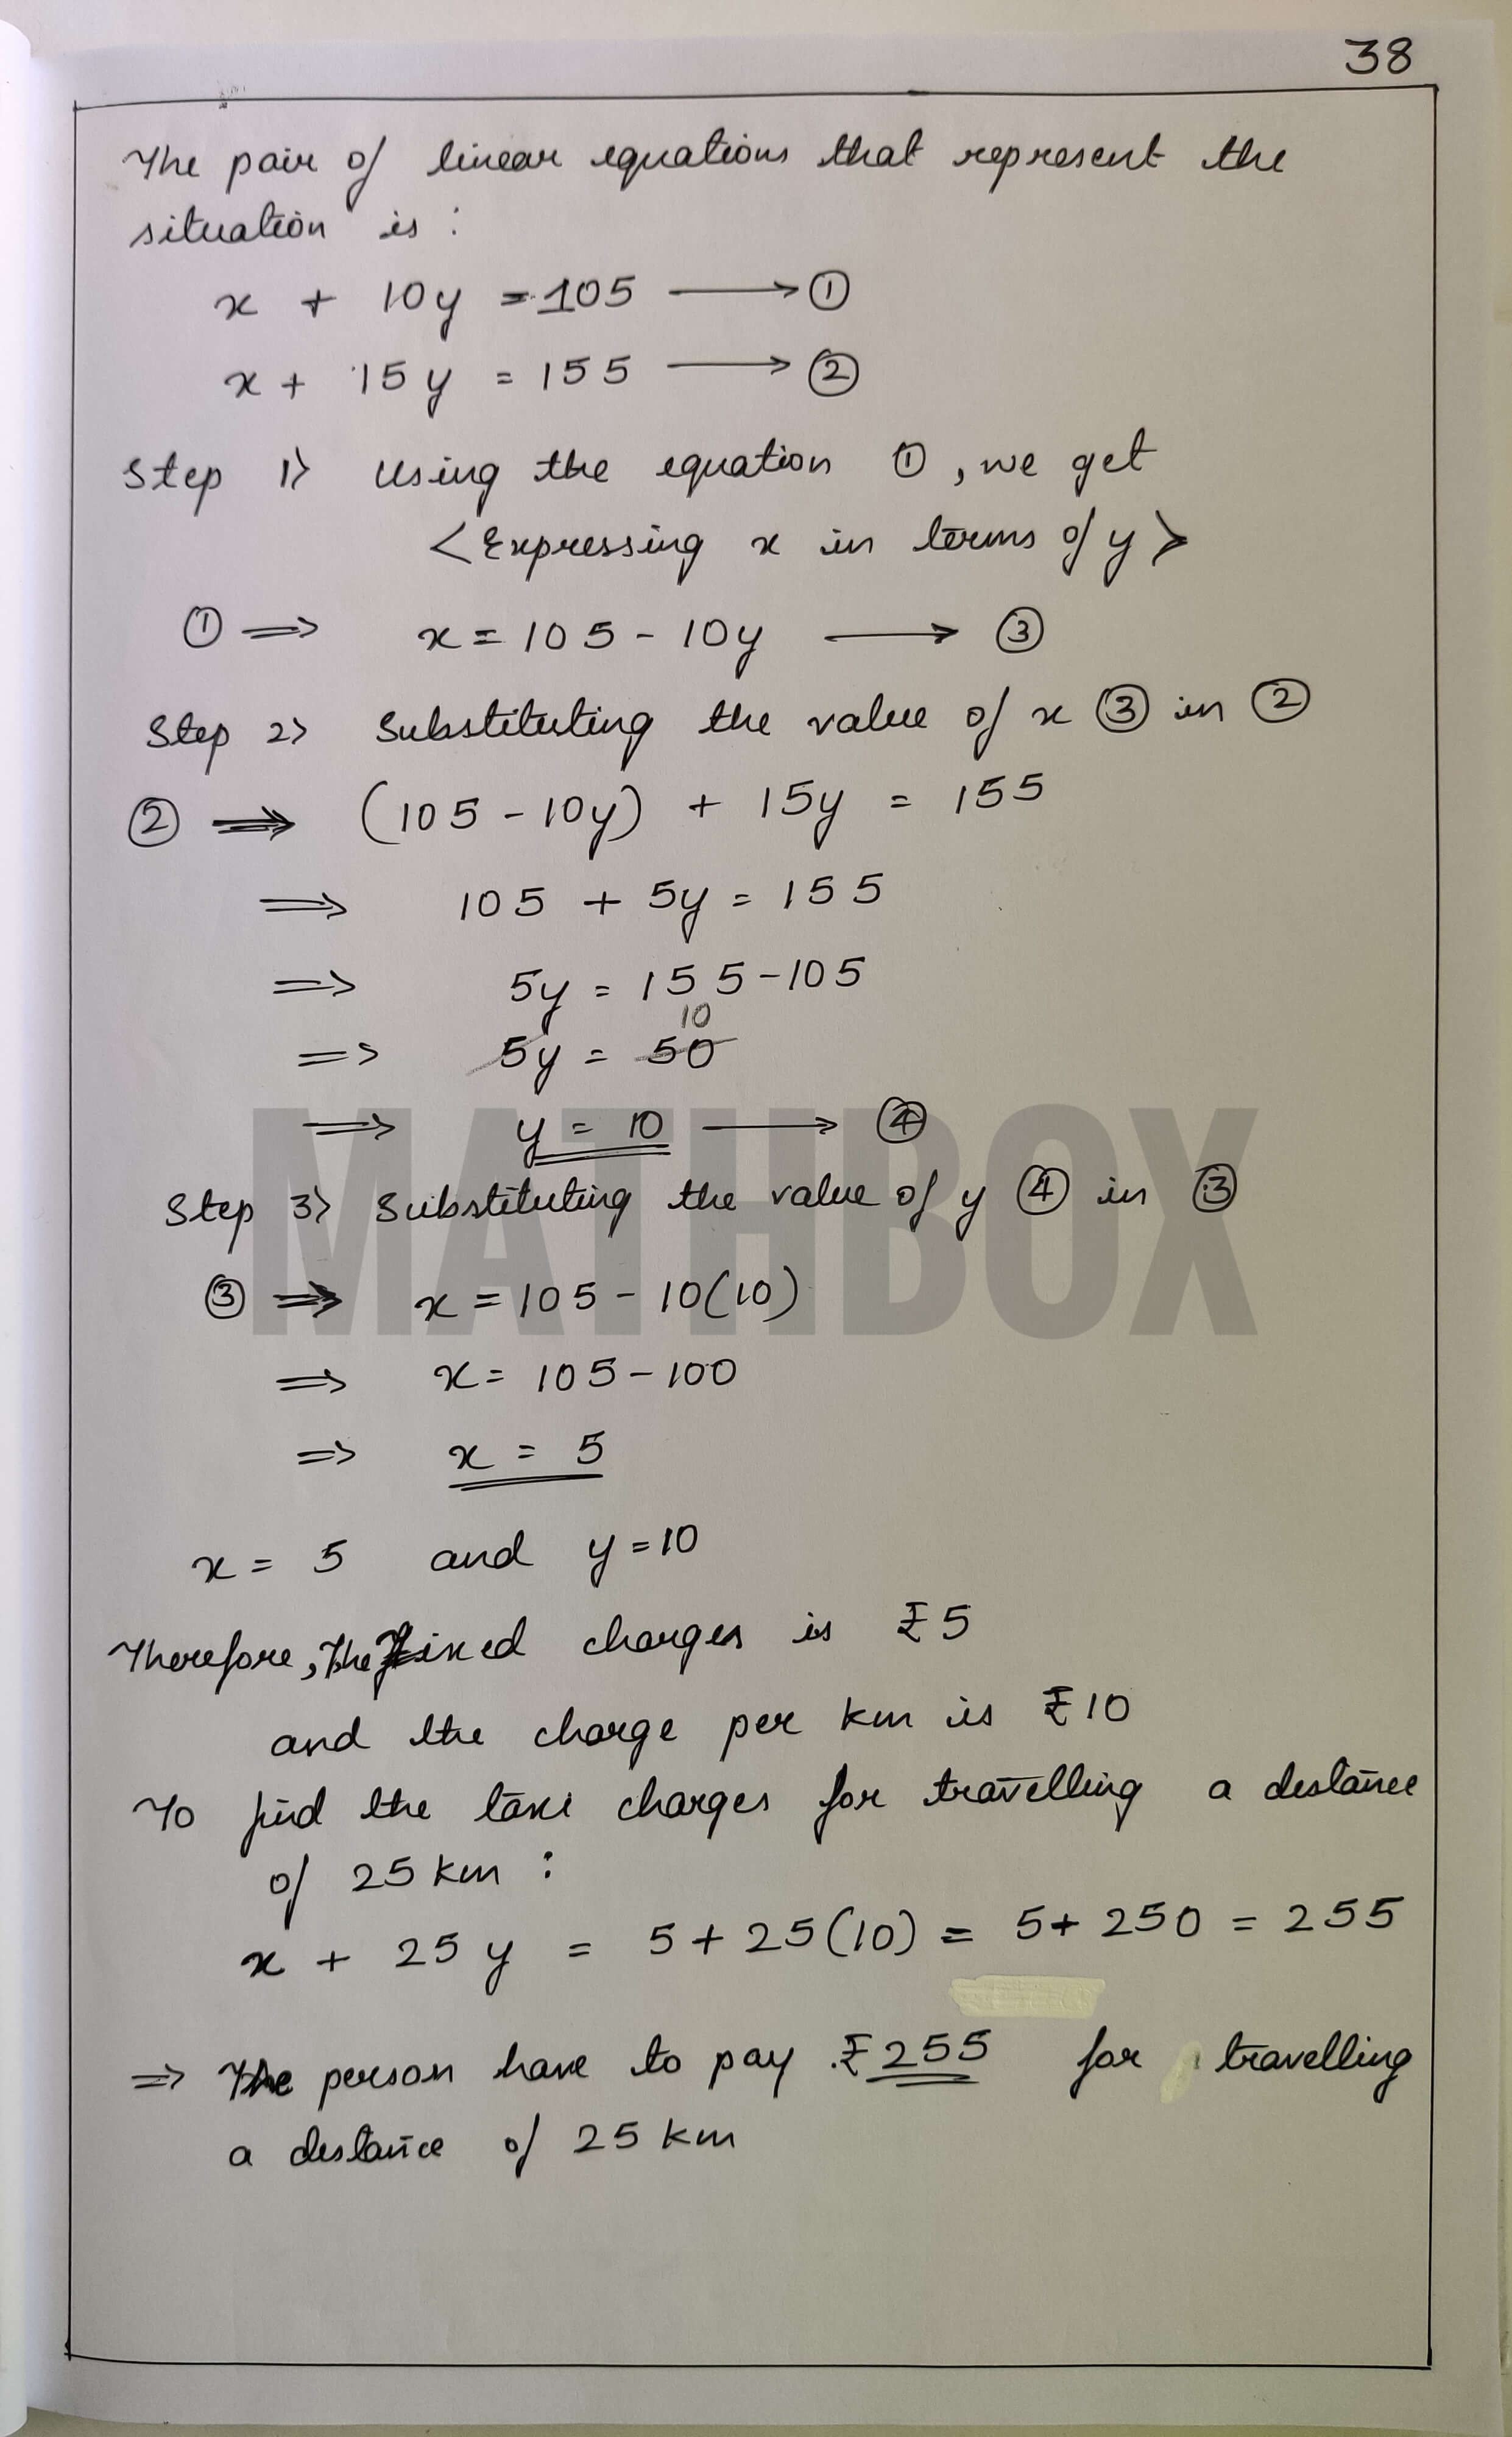 38
The pair of linear equations that represent the
situation is :
x + 10y = 105 ⟶ ①
x + 15y = 155 ⟶ ②
Step 1> Using the equation ①, we get
<Expressing x in terms of y>
① ⇒ x = 105 - 10y ⟶ ③
Step 2> Substituting the value of x ③ in ②
② ⇒ (105 - 10y) + 15y = 155
⇒ 105 + 5y = 155
⇒ 5y = 155 - 105
10
⇒ 5y = 50
⇒ y = 10 ⟶ ④
MATHBOX
Step 3> Substituting the value of y ④ in ③
③ ⇒ x = 105 - 10(10)
⇒ x = 105 - 100
⇒ x = 5
x = 5 and y = 10
Therefore, the fixed charges is ₹5
and the charge per km is ₹10
To find the taxi charges for travelling a distance
of 25 km :
x + 25y = 5 + 25(10) = 5 + 250 = 255
⇒ The person have to pay ₹255 for travelling
a distance of 25 km